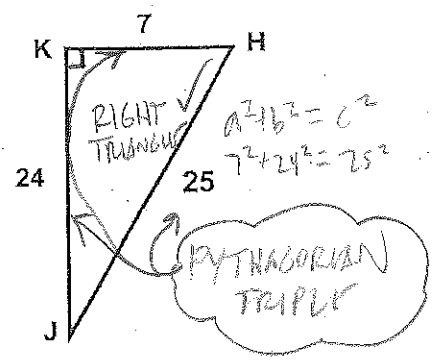 7
K H
RIGHT
TRIANGLE
a²+b²=c²
7²+24²=25²
24
25
PYTHAGORIAN
TRIPLE
J